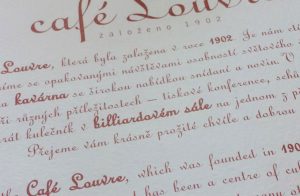 café Louvre
založeno 1902
Louvre, která byla založena v roce 1902. Je nám ctí
níme se opakovanými návštěvami osobností světového
kavárna se širokou nabídkou snídaní a novin. V
různých příležitostech – tiskové konference,
rát kulečník v billiardovém sále na jednom z
Přejeme vám krásně prožité chvíle a dobrou
Café Louvre, which was founded in 190
has been a centre of